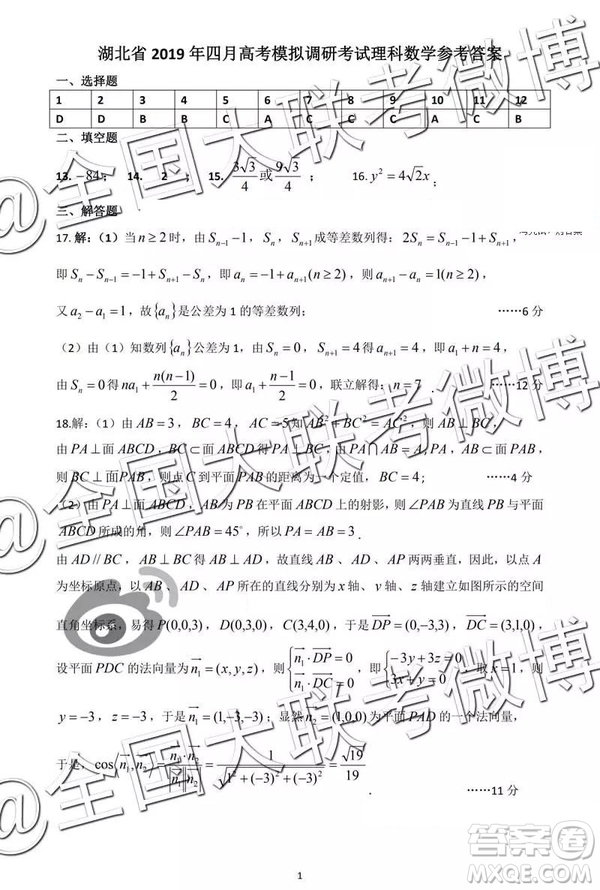 湖北省 2019 年四月高考模拟调研考试理科数学参考答案
一、选择题
1 2 3 4 5 6 7 8 9 10 11 12
D D B B C A C C C A C B
二、填空题
13. −84; 14. 2 ; 15. 3√3/4 或 9√3/4 ; 16. y² = 4√2x ;
三、解答题
17. 解:(1)当 n ≥ 2 时,由 Sₙ₋₁ −1, Sₙ, Sₙ₊₁ 成等差数列得: 2Sₙ = Sₙ₋₁ −1+ Sₙ₊₁,
即 Sₙ − Sₙ₋₁ = −1+ Sₙ₊₁ − Sₙ,即 aₙ = −1+ aₙ₊₁(n ≥ 2),则 aₙ₊₁ − aₙ = 1(n ≥ 2),
又 a₂ − a₁ = 1,故 {aₙ} 是公差为 1 的等差数列; ……6 分
(2)由(1)知数列 {aₙ} 公差为 1,由 Sₙ = 0, Sₙ₊₁ = 4 得 aₙ₊₁ = 4,即 a₁ + n = 4,
由 Sₙ = 0 得 na₁ + n(n−1)/2 = 0,即 a₁ + (n−1)/2 = 0,联立解得: n = 7 . ……12 分
18.解:(1)由 AB = 3, BC = 4, AC = 5 知 AB² + BC² = AC²,则 AB ⊥ BC,
由 PA ⊥ 面 ABCD, BC ⊂ 面 ABCD 得 PA ⊥ BC,由 PA ∩ AB = A, PA, AB ⊂ 面 PAB,
则 BC ⊥ 面 PAB,则点 C 到平面 PAB 的距离为一个定值, BC = 4; ……4 分
(2)由 PA ⊥ 面 ABCD, AB 为 PB 在平面 ABCD 上的射影,则 ∠PBA 为直线 PB 与平面
ABCD 所成的角,则 ∠PAB = 45°,所以 PA = AB = 3 .
由 AD // BC, AB ⊥ BC 得 AB ⊥ AD,故直线 AB、AD、AP 两两垂直,因此,以点 A
为坐标原点,以 AB、AD、AP 所在的直线分别为 x 轴、y 轴、z 轴建立如图所示的空间
直角坐标系,易得 P(0,0,3), D(0,3,0), C(3,4,0),于是 DP = (0,−3,3), DC = (3,1,0),
设平面 PDC 的法向量为 n₁ = (x, y, z),则 {n₁·DP = 0 n₁·DC = 0,即 {−3y+3z = 0 3x+ y = 0;取 x = 1,则
y = −3, z = −3,于是 n₁ = (1,−3,−3);显然 n₂ = (1,0,0) 为平面 PAD 的一个法向量,
于是, cos⟨n₁, n₂⟩ = n₁·n₂/|n₁||n₂| = 1/√(1² + (−3)² + (−3)²) = √19/19 . ……11 分
1
@全国大联考微博
@全国大联考微博
@全国大联考微博
答案圈
MXQE.COM